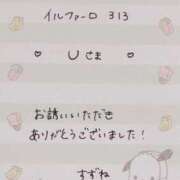 イルファーロ 313
♡ Uさま ♡
お誘いいただき
ありがとうございました！
すずね